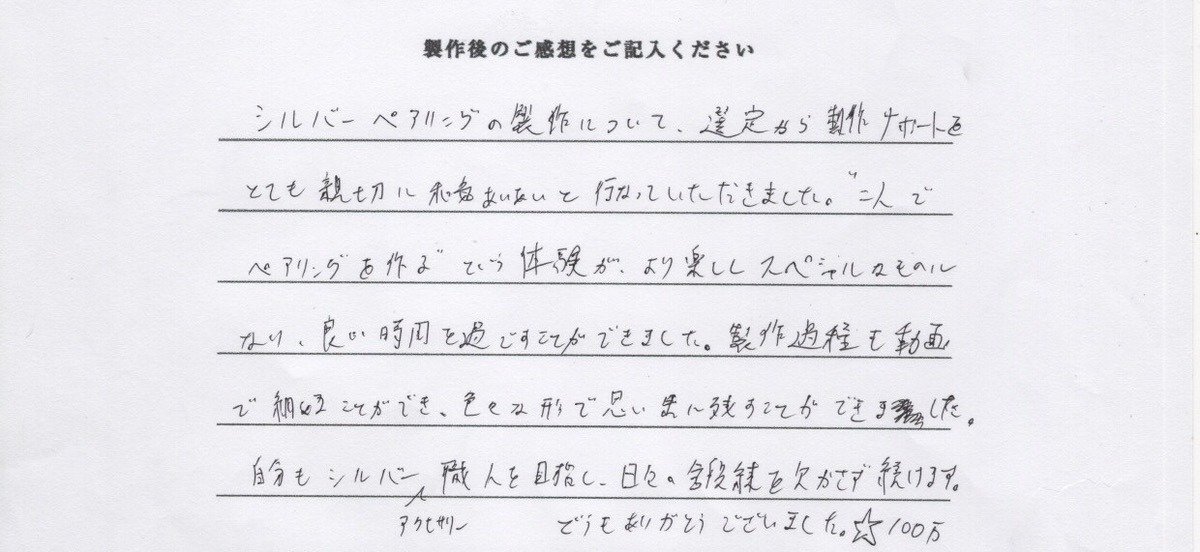 製作後のご感想をご記入ください
シルバーペアリングの製作について、選定から製作サポートを
とても親切に和気あいあいと行なっていただきました。"二人で
ペアリングを作る"という体験が、より楽しくスペシャルなものに
なり、良い時間を過ごすことができました。製作過程も動画
で納めることができ、色々な形で思い出に残すことができました。
自分もシルバー職人を目指し、日々の鍛錬を欠かさず続けます。
アクセサリー
どうもありがとうございました。☆100万